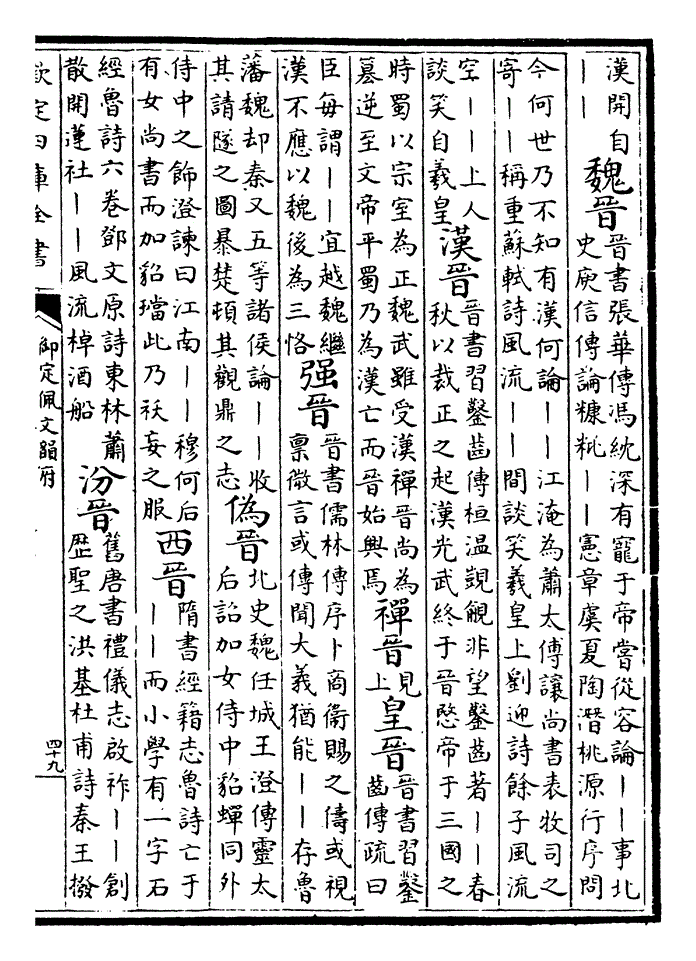 漢開自
｜｜
魏晉
晉書張華傳馮紞深有寵于帝嘗從容論｜｜事北
史庾信傳論糠粃｜｜憲章虞夏陶潛桃源行序問
今何世乃不知有漢何論｜｜江淹為蕭太傅讓尚書表牧司之
寄｜｜稱重蘇軾詩風流｜｜間談笑羲皇上劉迎詩餘子風流
空｜｜上人
談笑自羲皇
漢晉
晉書習鑿齒傳桓温覬覦非望鑿齒著｜｜春
秋以裁正之起漢光武終于晉愍帝于三國之
時蜀以宗室為正魏武雖受漢禪晉尚為
簒逆至文帝平蜀乃為漢亡而晉始興焉
禪晉
見
上
皇晉
晉書習鑿
齒傳疏曰
臣每謂｜｜宜越魏繼
漢不應以魏後為三恪
强晉
晉書儒林傳序卜商衞賜之儔或視
稟微言或傳聞大義猶能｜｜存魯
藩魏却秦又五等諸侯論｜｜收
其請隧之圖暴楚頓其觀鼎之志
偽晉
北史魏任城王澄傳靈太
后詔加女侍中貂蟬同外
侍中之飾澄諫曰江南｜｜穆何后
有女尚書而加貂璫此乃袄妄之服
西晉
隋書經籍志魯詩亡于
｜｜而小學有一字石
經魯詩六卷鄧文原詩東林蕭
散開蓮社｜｜風流棹酒船
汾晉
舊唐書禮儀志啟祚｜｜創
歴聖之洪基杜甫詩秦王撥
欽定四庫全書
御定佩文韻府
四十九